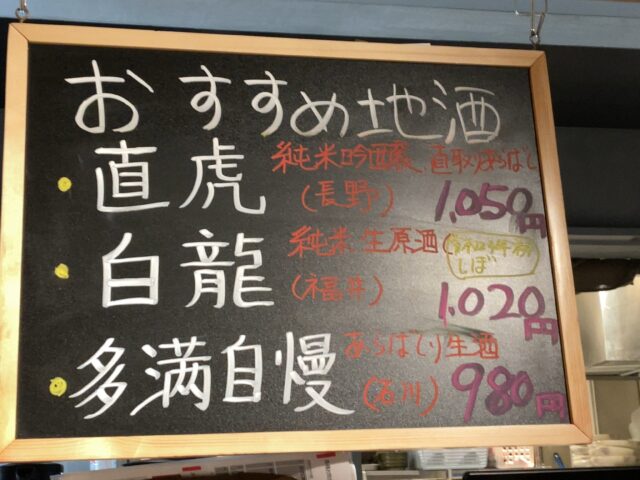 おすすめ地酒
直虎 純米吟醸 直取りあらばしり
(長野) 1,050円
白龍 純米生原酒
(福井) 1,020円
多満自慢 あらばしり生酒
(石川) 980円